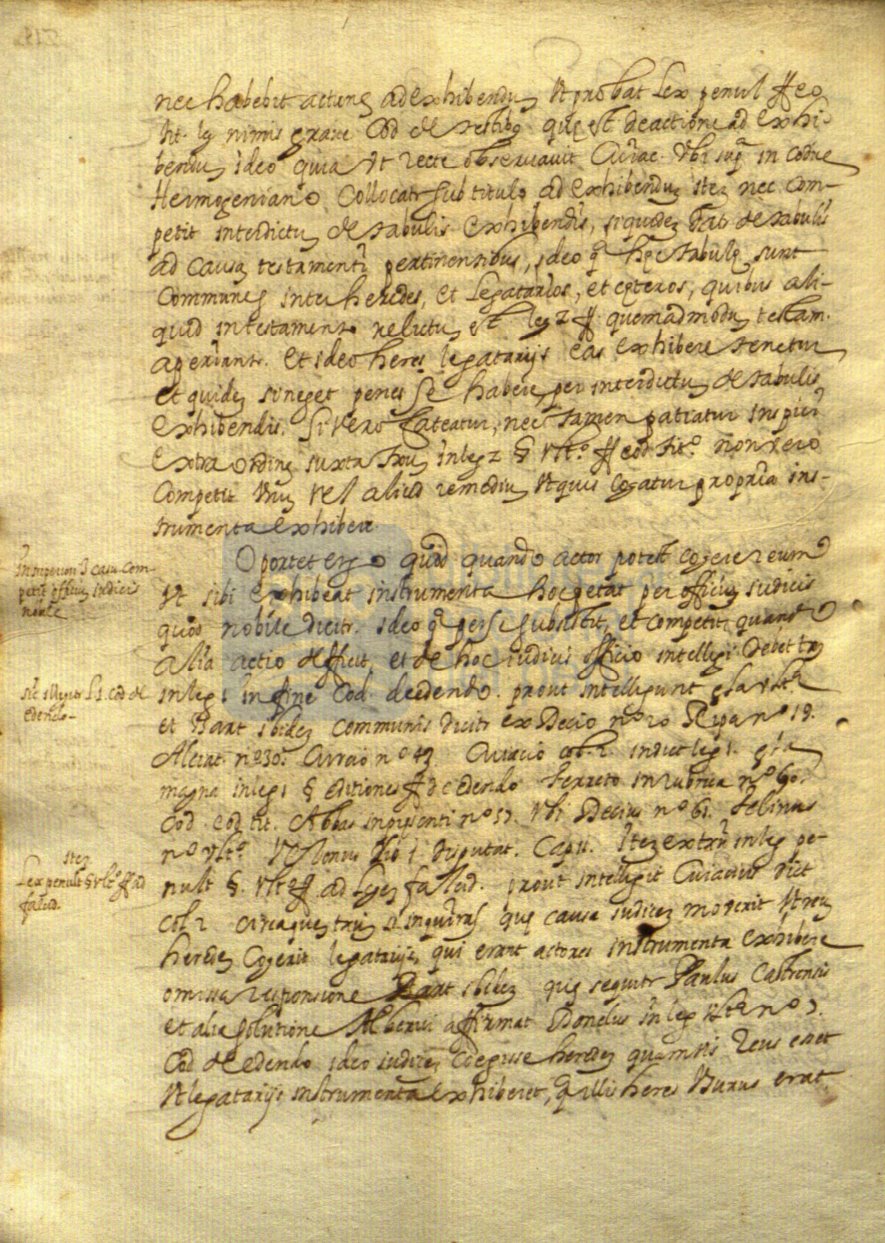 nec habebit actionem ad exhibendum Vt probat Lex penul ff eo
tit. leg nimis grave Cod de testibq que est de actione ad Exhi-
bendu ideo quia Vt recte observavit Cuiac. Vbi sup in codice
Hermogeniano Collocatr sub titulo ad exhibendum item nec Com-
petit interdictum de tabulis Exhibendis, siquidem datr de tabulis
ad causam testamenti pertinentibus, ideo q hęc tabulę sunt
Communes inter heredes, et Legatarios, et cęteros, quibus ali-
quid intestamento relictum est leg 2 ff quemadmodum testam.
aperiantr. Et ideo heres legatarijs eas Exhibere tenetur
et quidem si neget penes se habere per interdictum de tabulis
Exhibendis. Si vero fateatur, nec tamen patiatur inspici
Extra ordinem iuxta inleg 2 § vlt.º ff eod tit.º non vero
Competit vel aliud remedium Vt quis cogatur propria ins-
trumenta Exhibere
Oportet ergo quod quando actor potest cogere reum
Vt sibi Exhibeat instrumenta hoc petat per officium iudicis
quod nobile dicitr. ideo q per se subsistit, et competit quando
alia actio deficit, et de hoc iudicis officio intellegi debet
inleg 1 in fine Cod de edendo. prout intelligunt glosa vlt.ª
et Bart ibidem communis dicitr ex Decio nº 20 Ripa nº 18.
Alciat. nº 30. Curcio nº 49 Cuiacio col. 2. indict leg 1. gla
magna inleg 1 § editiones ff de edendo ferreto in rubrica nº 60.
Cod eod tit. Abbas nº 57. Vbi Decius nº 61. felinus
nº vlt.º lib 1 disputat. Cap 11. Item inleg pe-
nult §. vlt ff ad legem falcid. prout intelligit Cuiacius dict
col 2 si inquiras quę causa iudicem moverit Vt reum
heredem Cogerit legatarijs qui erant actores instrumenta Exhibere
omissa responsione Bart ibidem que sequitr Paulus Castrensis
et alia solutione Alberici affirmat Donelus inleg vlt.ª nº 7.
Cod de edendo ideo iudicem Coegisse heredem quamvis Reus esset
Vt legatarijs instrumenta exhiberet, q illis heres erat
Insuperiori casu com-
petit officium iudicis
nobile
sic intelligitr L 1. Cod de
edendo-
item
Lex penult § vlt.º ff ad
falcid.